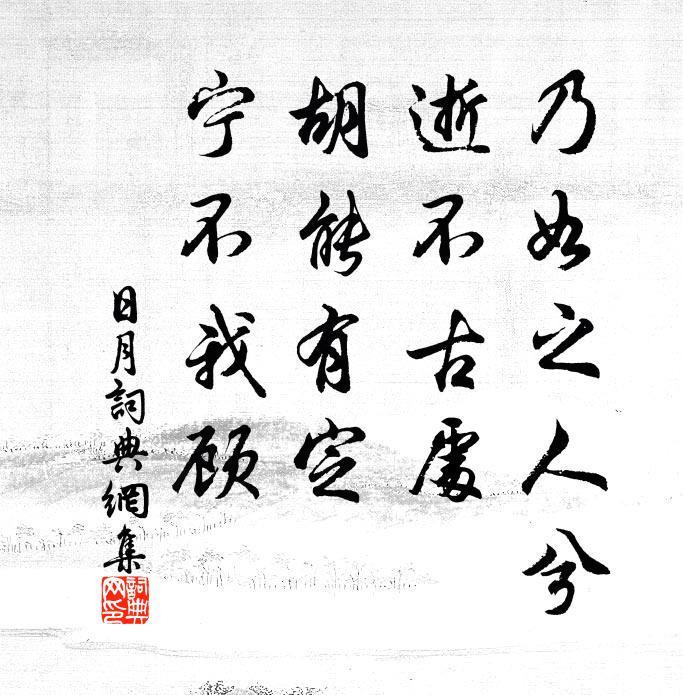 乃如之人兮
逝不古處
胡能有定
宁不我顾
日月詞典網集
詞典網印